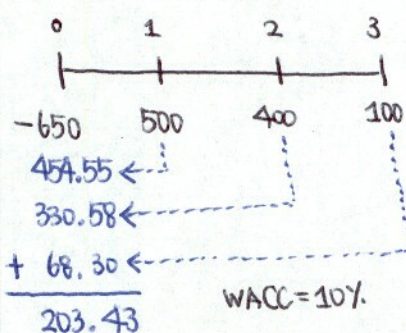 0 1 2 3
-650 500 400 100
454.55
330.58
+ 68.30
203.43 WACC=10%.